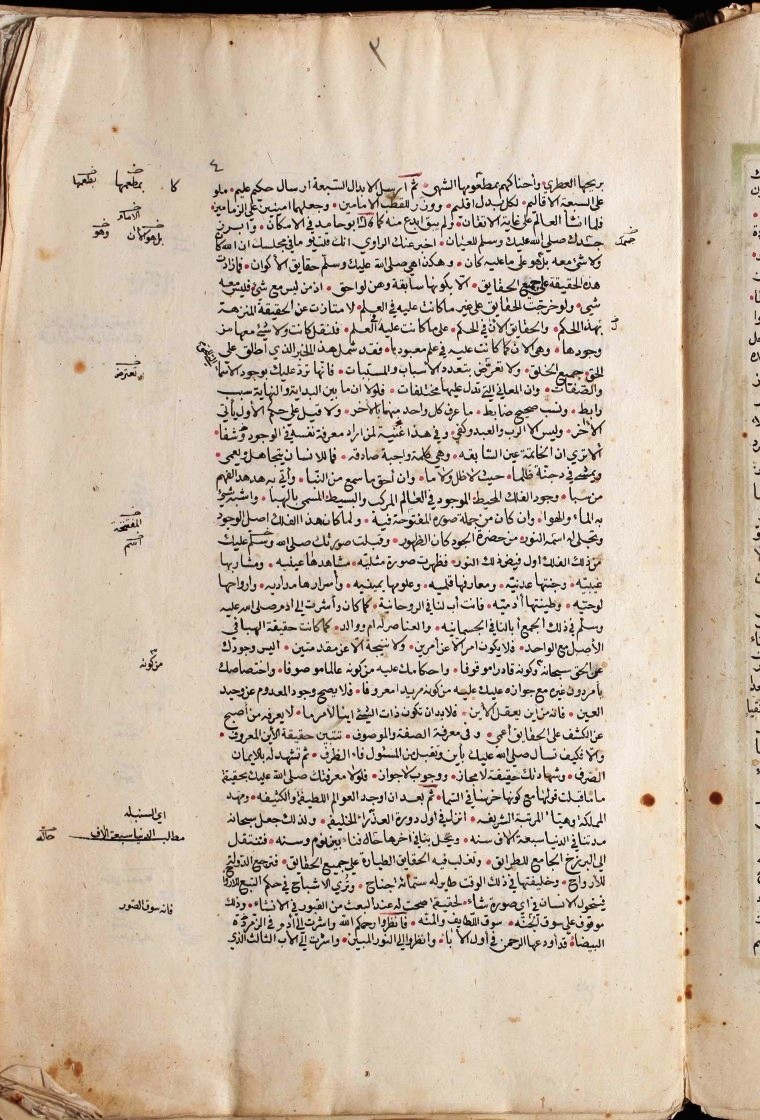 ٢
٤
بريحها العطري • واحناكهم بمطعومها الشهي • ثم ارسل الابدال السبعة ارسال حكيم عليم • ملوكا
على السبعة الاقاليم • لكل بدل اقليم • ووزر للقطب الامامين • وجعلهما امينين على الزمامين
فلما انشأ العالم على غاية الاتقان • ولم يبق ابدع منه كما قال ابو حامد في الامكان • وابرز
جسدك صلى الله عليك وسلم للعيان • اخبر عنك الراوي انك قلت يوما في مجلسك ان الله كان
ولا شئ معه بل هو على ما عليه كان • وهكذا هي صلى الله عليك وسلم حقايق الاكوان • فما زادت
هذه الحقيقة على جميع الحقايق • الا بكونها سابقة وهن لواحق • اذ من ليس مع شئ فليس معه
شئ • ولو خرجت الحقايق على غير ما كانت عليه في العلم • لامتازت عن الحقيقة المنزهة
بهذا الحكم • والحقايق الآن في الحكم • على ما كانت عليه في العلم • فلنقل كانت ولا شئ معها من
وجودها • وهي الآن كما كانت عليه في علم معبودها • فقد شمل هذا الخبر الذي اطلق على
الحق جميع الخلق • ولا تعترض بتعدد الاسباب والمسببات • فانها ترد عليك بوجود الاسما
والصفات • وان المعاني التي تدل عليها مختلفات • فلولا ما بين البداية والنهاية سبب
رابط • ونسب صحيح ضابط • ما عرف كل واحد منهما بالآخر • ولا قيل على حكم الاول يأتي
الآخر • وليس الا الرب والعبد وكفى • وفي هذا غنية لمن اراد معرفة نفسه في الوجود وشفا •
الا ترى ان الخاتمة عين السابقة • وهي كلمة واجبة صادقة • فما للانسان يتجاهل ويعمى •
ويمشي في دجنة ظلما • حيث لا ظل ولا ما • وان احق ما سمع من النبا • وأتى به هدهد الفهم
من سبا • وجود الفلك المحيط الموجود في العالم المركب والبسيط المسمى بالهبا • واشبه شئ
به الماء والهوا • وان كان من جملة صوره المفتوحة فيه • ولما كان هذا الفلك اصل الوجود
وتجلى له اسمه النور • من حضرة الجود كان الظهور • وقبلت صورتك صلى الله وسلم عليك
من ذلك الفلك اول فيض ذلك النور • فظهرت صورة مثلية • مشاهدها عينيه • ومشاربها
غيبيه • وجنتها عدنية • ومعارفها قلميه • وعلومها يمينيه • واسرارها مداديه • وارواحها
لوحيه • وطينتها آدميه • فانت أب لنا في الروحانية • كما كان وأشرت الى آدم صلى الله عليه
وسلم في ذلك الجمع أبا لنا في الجسمانيه • والعناصر له ام ووالد • كما كانت حقيقة الهبا في
الأصل مع الواحد • فلا يكون امر الا عن أمرين • ولا نتيجة الا عن مقدمتين • اليس وجودك
عن الحق سبحانه وكونه قادرا موقوفا • واحكامك عليه من كونه عالما موصوفا • واختصاصك
بأمر دون غيره مع جوازه عليك عليه من كونه مريدا معروفا • فلا يصح وجود المعدوم عن وحيد
العين • فانه من اين يعقل الأين • فلا بد ان تكون ذات الشئ اينا لأمر ما • لا يعرفه من أصبح
عن الكشف على الحقايق أعمى • وفي معرفة الصفة والموصوف • تتبين حقيقة الأين المعروف •
والا فكيف تسأل صلى الله عليك بأين وتقبل من المسئول فاء الظرف • ثم تشهد له بالايمان
الصرف • وشهادتك حقيقة لا مجاز • ووجوب لا جواز • فلولا معرفتك صلى الله عليك بحقيقة
ما ما قبلت قولها مع كونها خرسا في السما • ثم بعد ان اوجد العوالم اللطيفة والكثيفه • ومهد
المملكة وهيأ المرتبة الشريفه • انزل في اول دورة العذراء الخليفه • ولذلك جعل سبحانه
مدتنا في الدنيا سبعة آلاف سنه • وتحل بنا في آخرها حال فناء بين نوم وسنه • فننتقل
الى البرزخ الجامع للطرايق • وتغلب فيه الحقايق الطيارة على جميع الحقايق • فترجع الدولة
للأرواح • وخليفتها في ذلك الوقت طاير له ستمائة جناح • وترى الاشباح في حكم التبع للارواح
فيتحول الانسان في اي صورة شاء • لحقيقة صحت له عند البعث من القبور في الانشاء • وذلك
موقوف على سوق الجنه • سوق اللطايف والمنه • فانظروا رحمكم الله واشرت الى آدم في الزمردة
البيضاء قد اودعها الرحمن في أول الآباء • وانظروا الى النور المبين • واشرت الى الأب الثاني الذي
كا
بمطعمها
بطعمها
الامام
بل هو الآن
وهو
تعترض
المفتتحة
اسم
من كونه
اي السنبله
مطالب الدنيا سبعة الاف
حاله
فانه سوق الصور